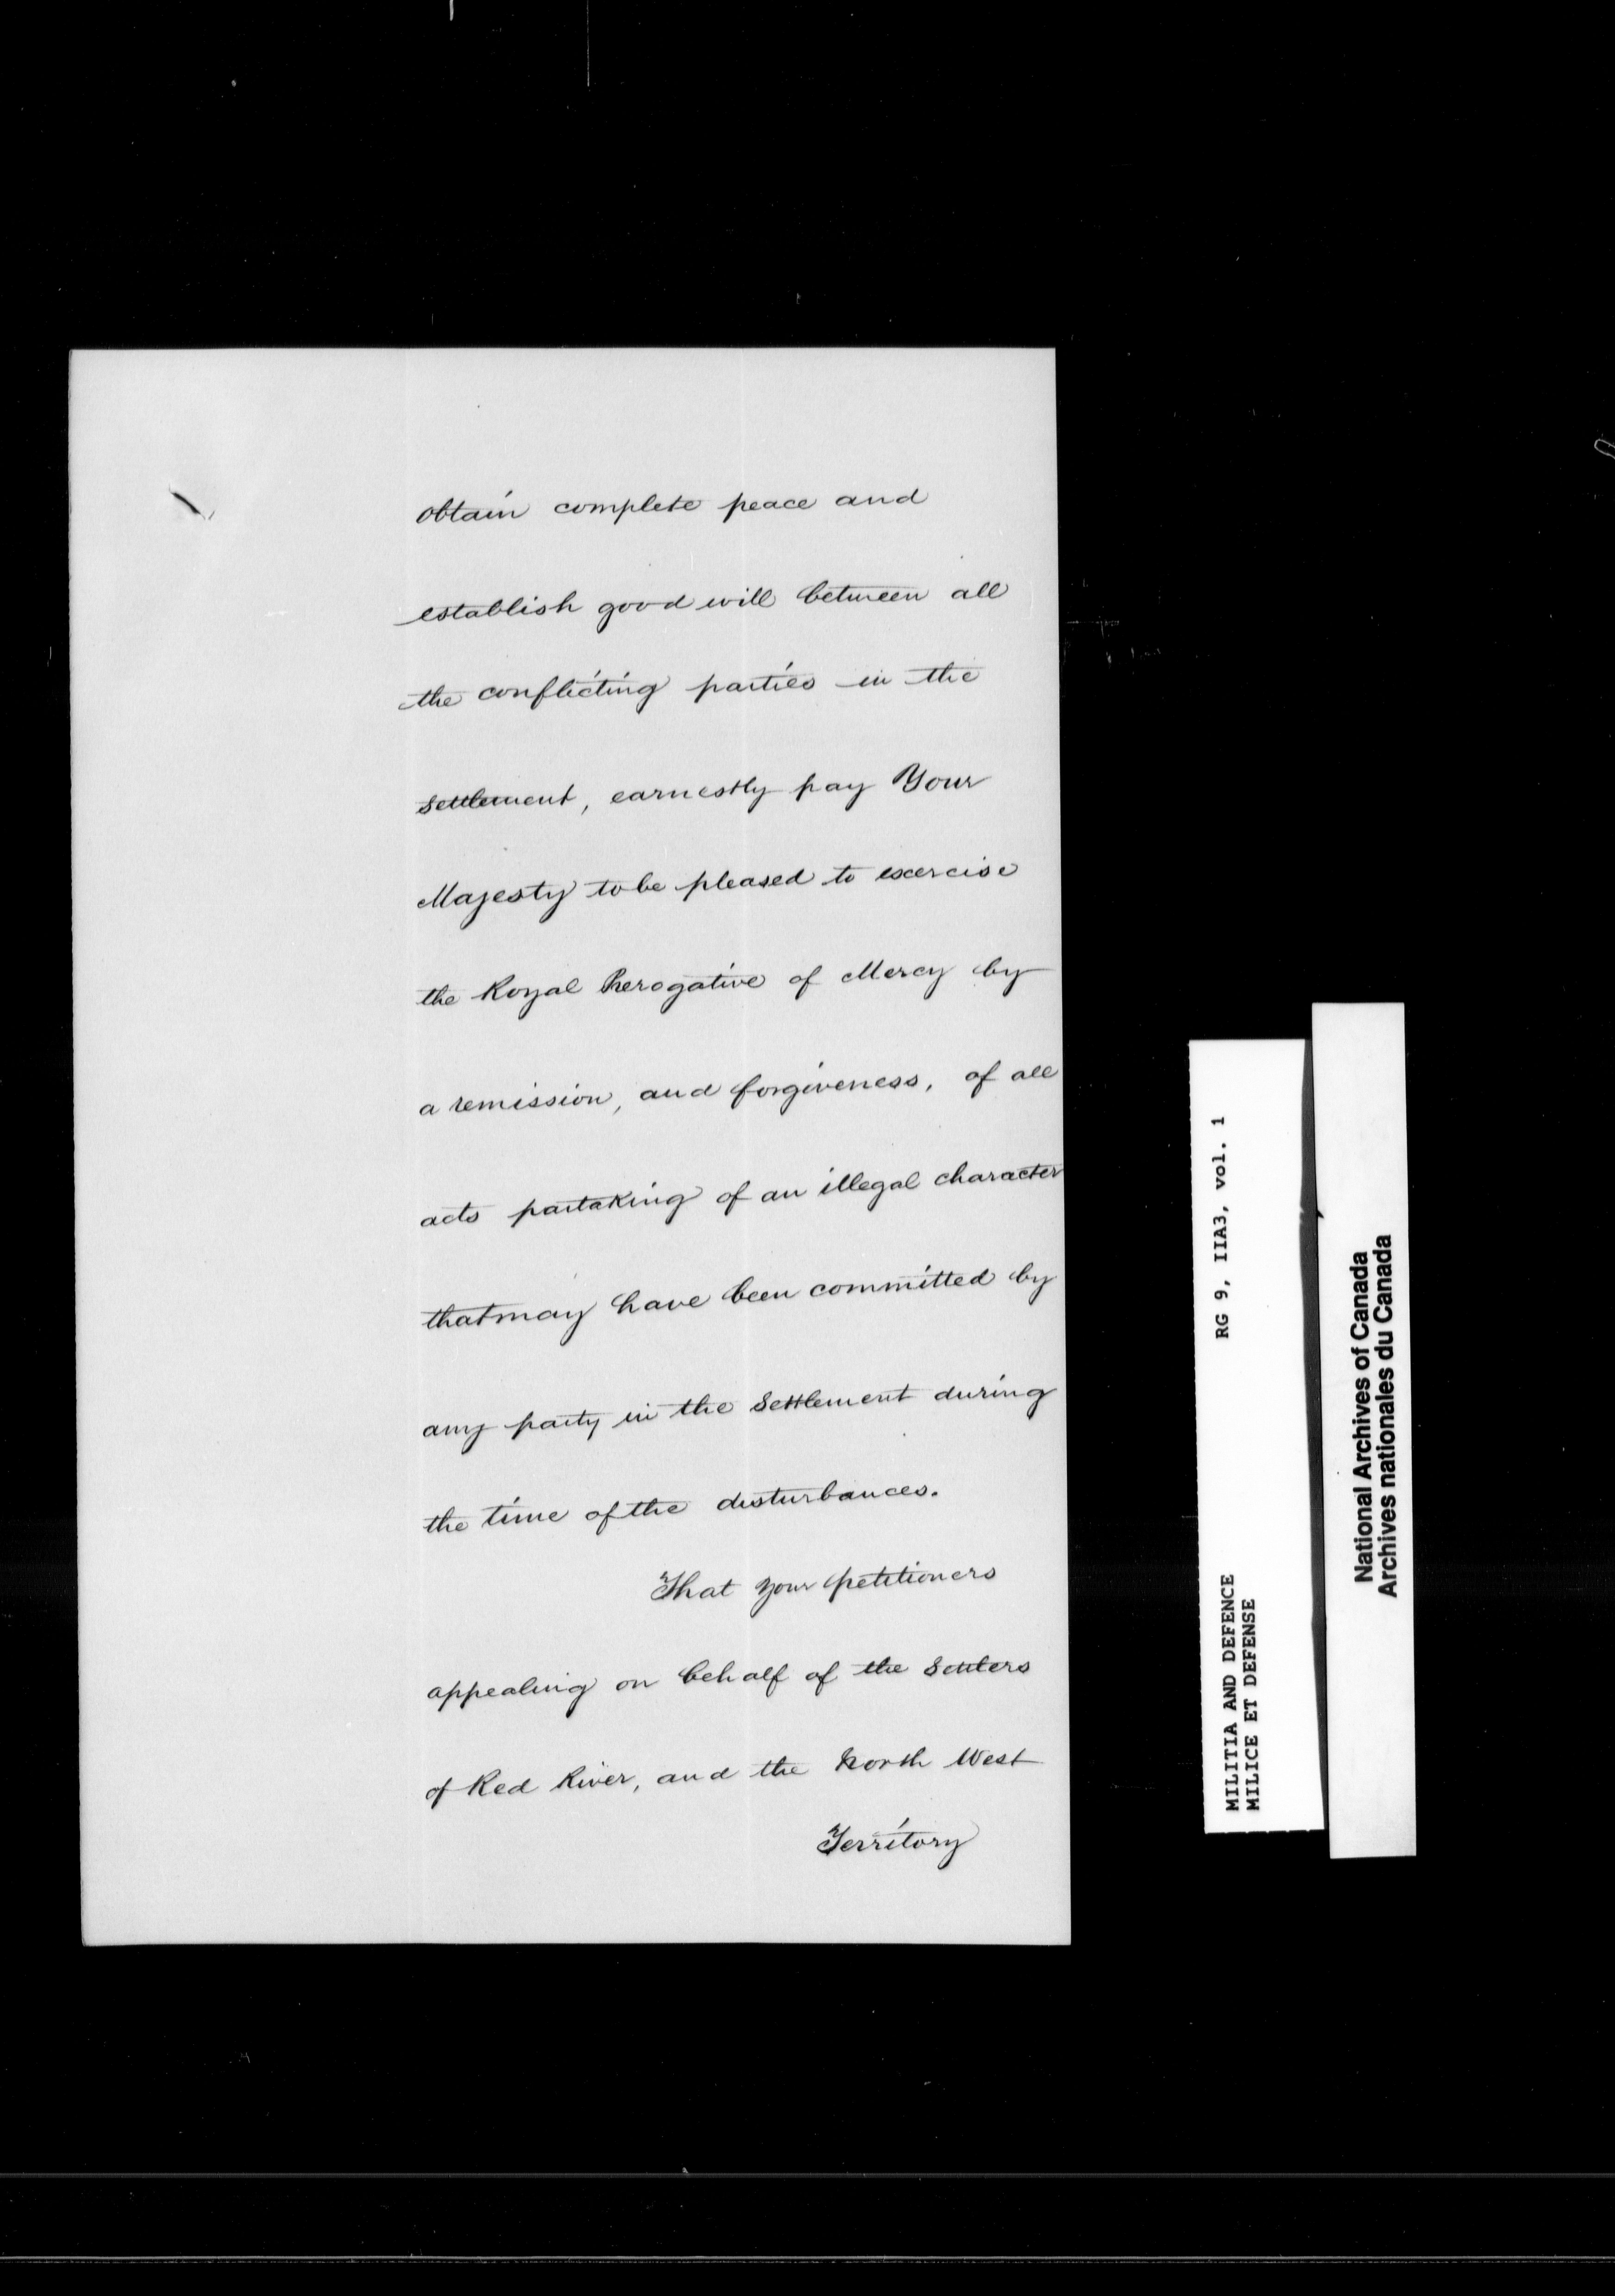 obtain complete peace and
establish good will between all
the conflicting parties in the
settlement, earnestly pay Your
Majesty to be pleased to exercise
the Royal Perogative of Mercy by
a remission, and forgiveness, of all
acts partaking of an illegal character
that may have been committed by
any party in the Settlement during
the time of the disturbances.
That your petitioners
appealing on behalf of the Settlers
of Red River, and the North West
Territory
MILITIA AND DEFENCE RG 9, IIA3, vol. 1
MILICE ET DEFENSE
National Archives of Canada
Archives nationales du Canada